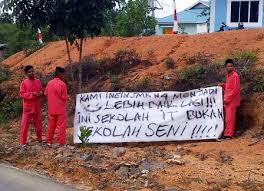 KAMI INGIN SMK N 4 MENJADI
LEBIH BAIK LAGI!!!
INI SEKOLAH IT BUKAN
SEKOLAH SENI!!!!!